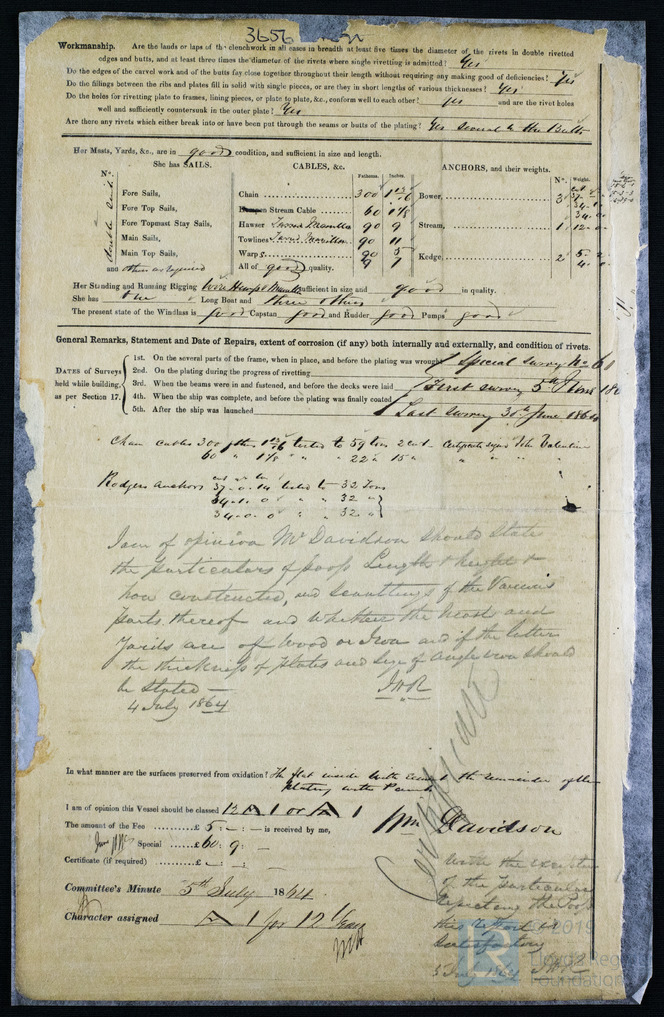 3656
Workmanship. Are the lands or laps of the clenchwork in all cases in breadth at least five times the diameter of the rivets in double rivetted
edges and butts, and at least three times the diameter of the rivets where single rivetting is admitted? Yes
Do the edges of the carvel work and of the butts fay close together throughout their length without requiring any making good of deficiencies? Yes
Do the fillings between the ribs and plates fill in solid with single pieces, or are they in short lengths of various thicknesses? Yes
Do the holes for rivetting plate to frames, lining pieces, or plate to plate, &c., conform well to each other? yes and are the rivet holes
well and sufficiently countersunk in the outer plate? Yes
Are there any rivets which either break into or have been put through the seams or butts of the plating? Yes several in the Butts
Her Masts, Yards, &c., are in good condition, and sufficient in size and length.
She has SAILS. CABLES, &c. ANCHORS, and their weights.
N°. Fathoms. Inches. N°. Weight.
Fore Sails, Chain 300 1 13/16 Bower, 3
Fore Top Sails, Stream Cable 60 1 1/8
Fore Topmast Stay Sails, Hawser 90 9 Stream, 1 12
Main Sails, Towlines 90 11
Main Top Sails, Warps 90 5 Kedge, 2
and others as required All of good quality.
Her Standing and Running Rigging Wire Hemp & Manilla sufficient in size and good in quality.
She has one Long Boat and three others
The present state of the Windlass is good Capstan good and Rudder good Pumps good
General Remarks, Statement and Date of Repairs, extent of corrosion (if any) both internally and externally, and condition of rivets.
DATES of Surveys held while building, as per Section 17.
1st. On the several parts of the frame, when in place, and before the plating was wrought Special survey No 61
2nd. On the plating during the progress of rivetting
3rd. When the beams were in and fastened, and before the decks were laid First survey 5th
4th. When the ship was complete, and before the plating was finally coated
5th. After the ship was launched Last survey 30th June 1864
Chain cables 300 fthms 1 13/16 tested to 59 tons 2 cwt Certificate signed John Valentine
60 " 1 1/8 " " 22 " 15 " " " "
Rodgers anchors 37-0-14 tested to 32 Tons
34-1-0 " " 32 "
34-0-0 " " 32 "
I am of opinion Mr Davidson should state
the particulars of poop Length & height &
how constructed, and scantlings of the Various
parts thereof and whether the Mast and
Yards are of Wood or Iron and if the latter
the thickness of plates and size of angle iron should
be stated —
4 July 1864
In what manner are the surfaces preserved from oxidation? The flat inside with cement the remainder of the
plating with Paint
I am of opinion this Vessel should be classed 12 A 1 or A 1
The amount of the Fee £ 5 : - : - is received by me, Wm Davidson
Special £60 : 9 : -
Certificate (if required) £ - : - : -
Committee's Minute 5th July 1864
Character assigned A 1 for 12 Years
With the exception
of the particulars
respecting the Poop
this report is
satisfactory
5 July 1864
© 2019
Lloyd's Register
Foundation